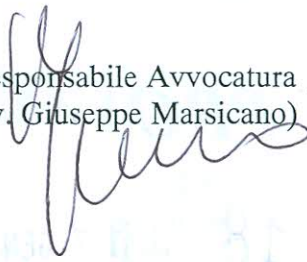 sponsabile Avvocatura
. Giuseppe Marsicano)